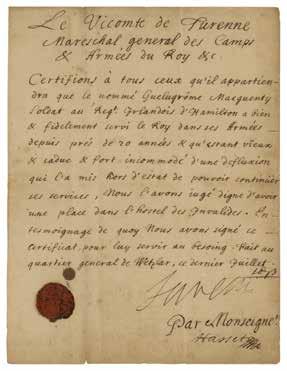 Le Vicomte de Turenne
Mareschal general des Camps
& Armées du Roy &c.
Certifions à tous ceux qu'il appartien-
dra que le nommé Guelugrôme Macquenty
Soldat au Regt. Irlandois d'Hamilton a bien
& fidelement servi le Roy dans ses Armées
depuis prés de 20 années & qu'estant vieux
& caduc & fort incommodé d'une defluxion
qui l'a mis hors d'estat de pouvoir continüer
ses services, Nous l'avons iugé digne d'avoir
une place dans l'hostel des Invalides. En
tesmoignage de quoy Nous avons signé ce
Certificat, pour luy servir au besoing. Fait au
quartier general de Wetzlar, ce dernier Juillet
1673
Turenne
Par Monseigne.r
Hasset